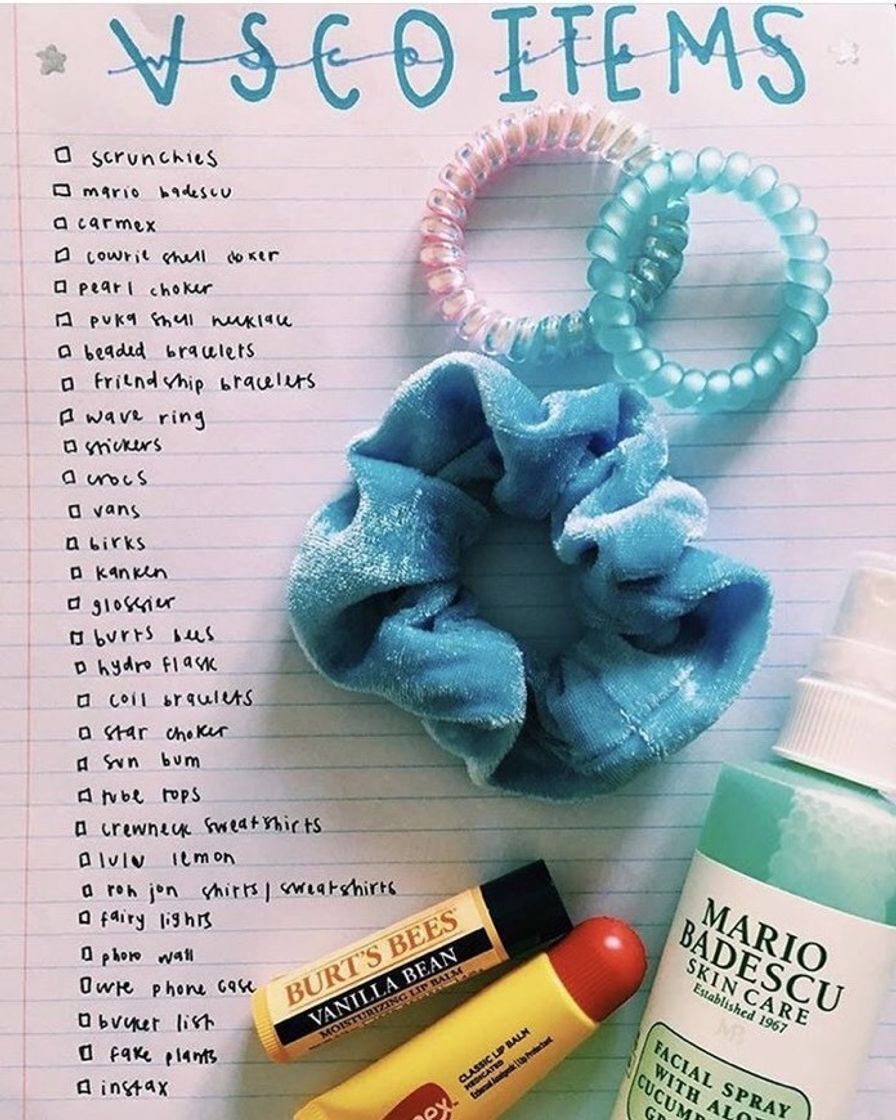 VSCO ITEMS
vsco items
scrunchies
mario badescu
carmex
cowrie shell choker
pearl choker
puka shell necklace
beaded bracelets
friendship bracelets
wave ring
stickers
crocs
vans
birks
kanken
glossier
burts bees
hydro flask
coil bracelets
star choker
sun bum
tube tops
crewneck sweatshirts
lulu lemon
ron jon shirts/sweatshirts
fairy lights
photo wall
cute phone case
bucket list
fake plants
instax
BURT'S BEES
VANILLA BEAN
MOISTURIZING LIP BALM
CLASSIC LIP BALM
MEDICATED
External Analgesic | Lip Protectant
mex
MARIO
BADESCU
SKIN CARE
Established 1967
MB
FACIAL SPRAY
WITH ALO
CUCUM
GR